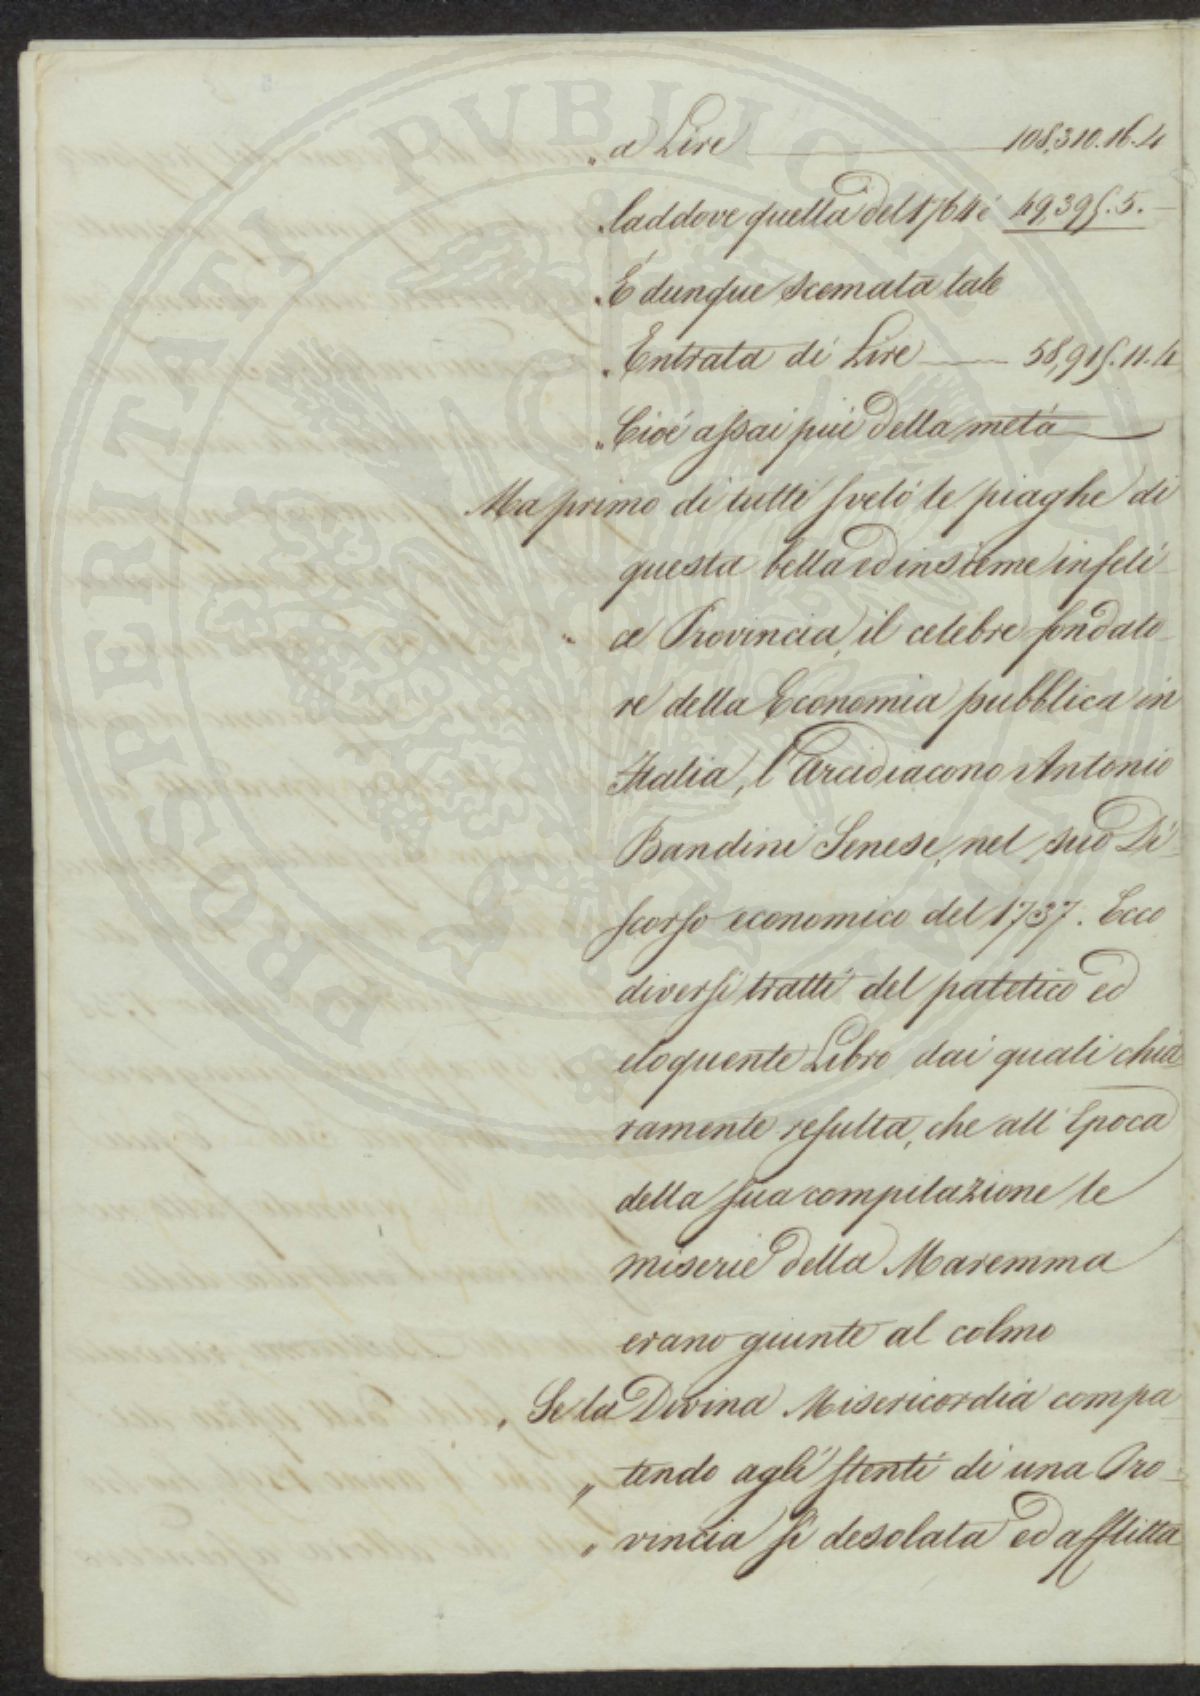 „ a Lire 108,310.16.4
„ laddove quella del 1764 é 49,395.5.
„ É dunque scemata tale
„ Entrata di Lire 58,915.11.4
„ Cioé assai piú della metá
Ma primo di tutti sveló le piaghe di
questa bella ed insieme infeli-
ce Provincia, il celebre fondato-
re della Economia pubblica in
Italia, l'Arcidiacono Antonio
Bandini Senese, nel suo Di-
scorso economico del 1737. Ecco
diversi tratti del patetico ed
eloquente Libro dai quali chia-
ramente resulta, che all'Epoca
della sua compilazione le
miserie della Maremma
erano giunte al colmo
„ Se la Divina Misericordia compa
„ tendo agli stenti di una Pro-
„ vincia sí desolata ed afflitta
PROSPERITATI PVBLICAE